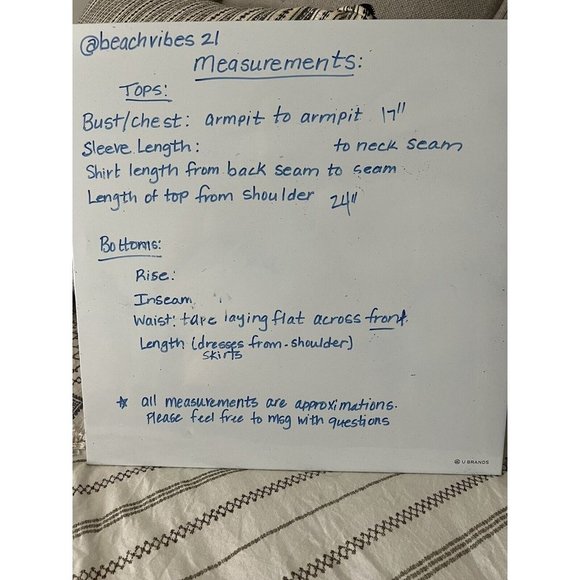 @beachvibes 21
Measurements:
Tops:
Bust/chest: armpit to armpit 17"
Sleeve Length: to neck seam
Shirt length from back seam to seam
Length of top from shoulder 24"
Bottoms:
Rise:
Inseam
Waist: tape laying flat across front.
Length (dresses from-shoulder)
skirts
* all measurements are approximations.
Please feel free to msg with questions
U BRANDS